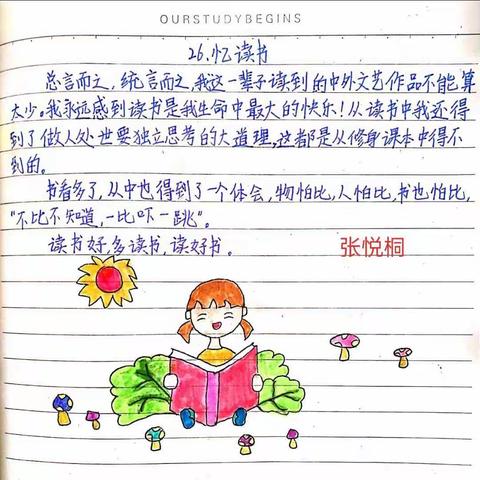 OURSTUDYBEGINS
26.忆读书
总言而之,统言而之,我这一辈子读到的中外文艺作品不能算
太少。我永远感到读书是我生命中最大的快乐!从读书中我还得
到了做人处世要独立思考的大道理,这都是从修身课本中得不
到的。
书看多了,从中也得到了一个体会,物怕比,人怕比,书也怕比,
"不比不知道,一比吓一跳"。
读书好,多读书,读好书。
张悦桐